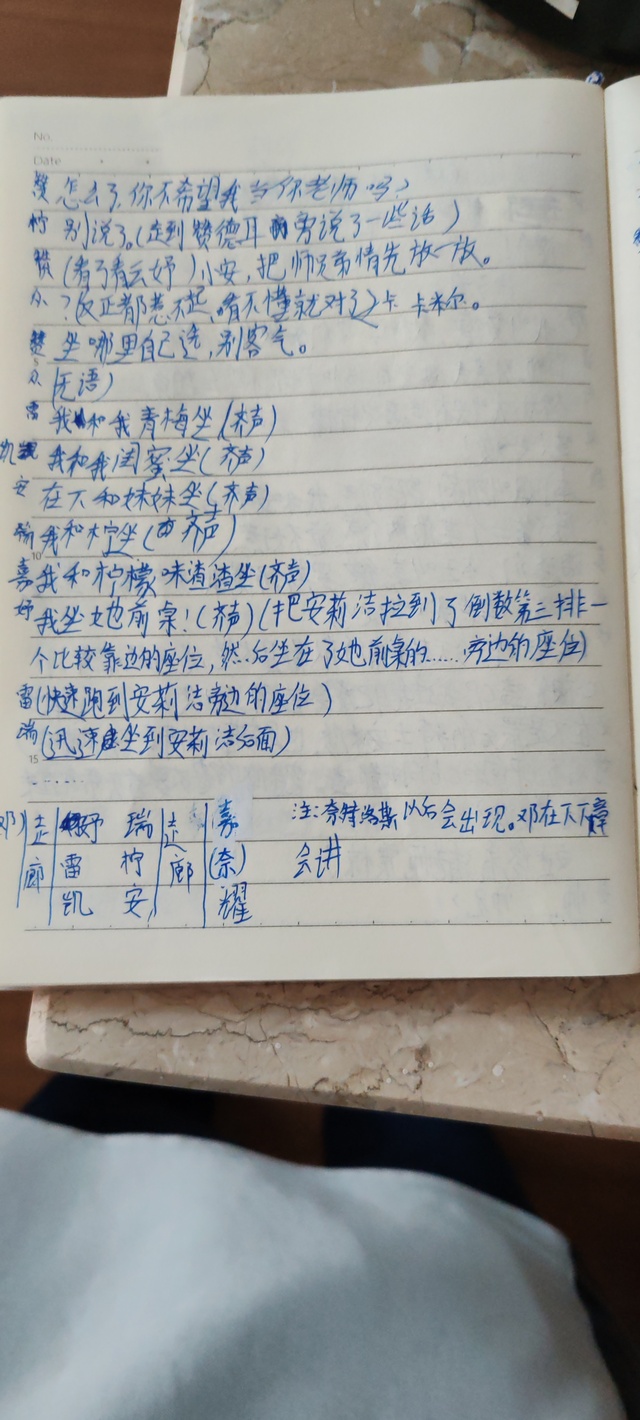 No.
Date
赞 怎么了,你不希望我当你老师吗?
柠 别说了。(走到赞德耳旁说了一些话)
赞 (看了看云妤)小安,把师兄弟情先放一放。
众 ?(反正都惹不起,看不懂就对了)卡 卡米尔。
赞 坐哪里自己选,别客气。
众 (无语)
雷 我和我青梅坐(齐声)
凯 我和我闺蜜坐(齐声)
安 在下和妹妹坐(齐声)
瑞 我和柠坐(齐声)
10
嘉 我和柠檬味渣渣坐(齐声)
妤 我坐她前桌!(齐声)(把安莉洁拉到了倒数第三排一
个比较靠边的座位,然后坐在了她前桌的……旁边的座位)
雷(快速跑到安莉洁旁边的座位)
瑞(迅速坐到安莉洁后面)
15
……
邓 走廊 妤 瑞 走廊 嘉 注:奈特洛斯以后会出现。邓在下下章
雷 柠 (奈) 会讲
凯 安 耀